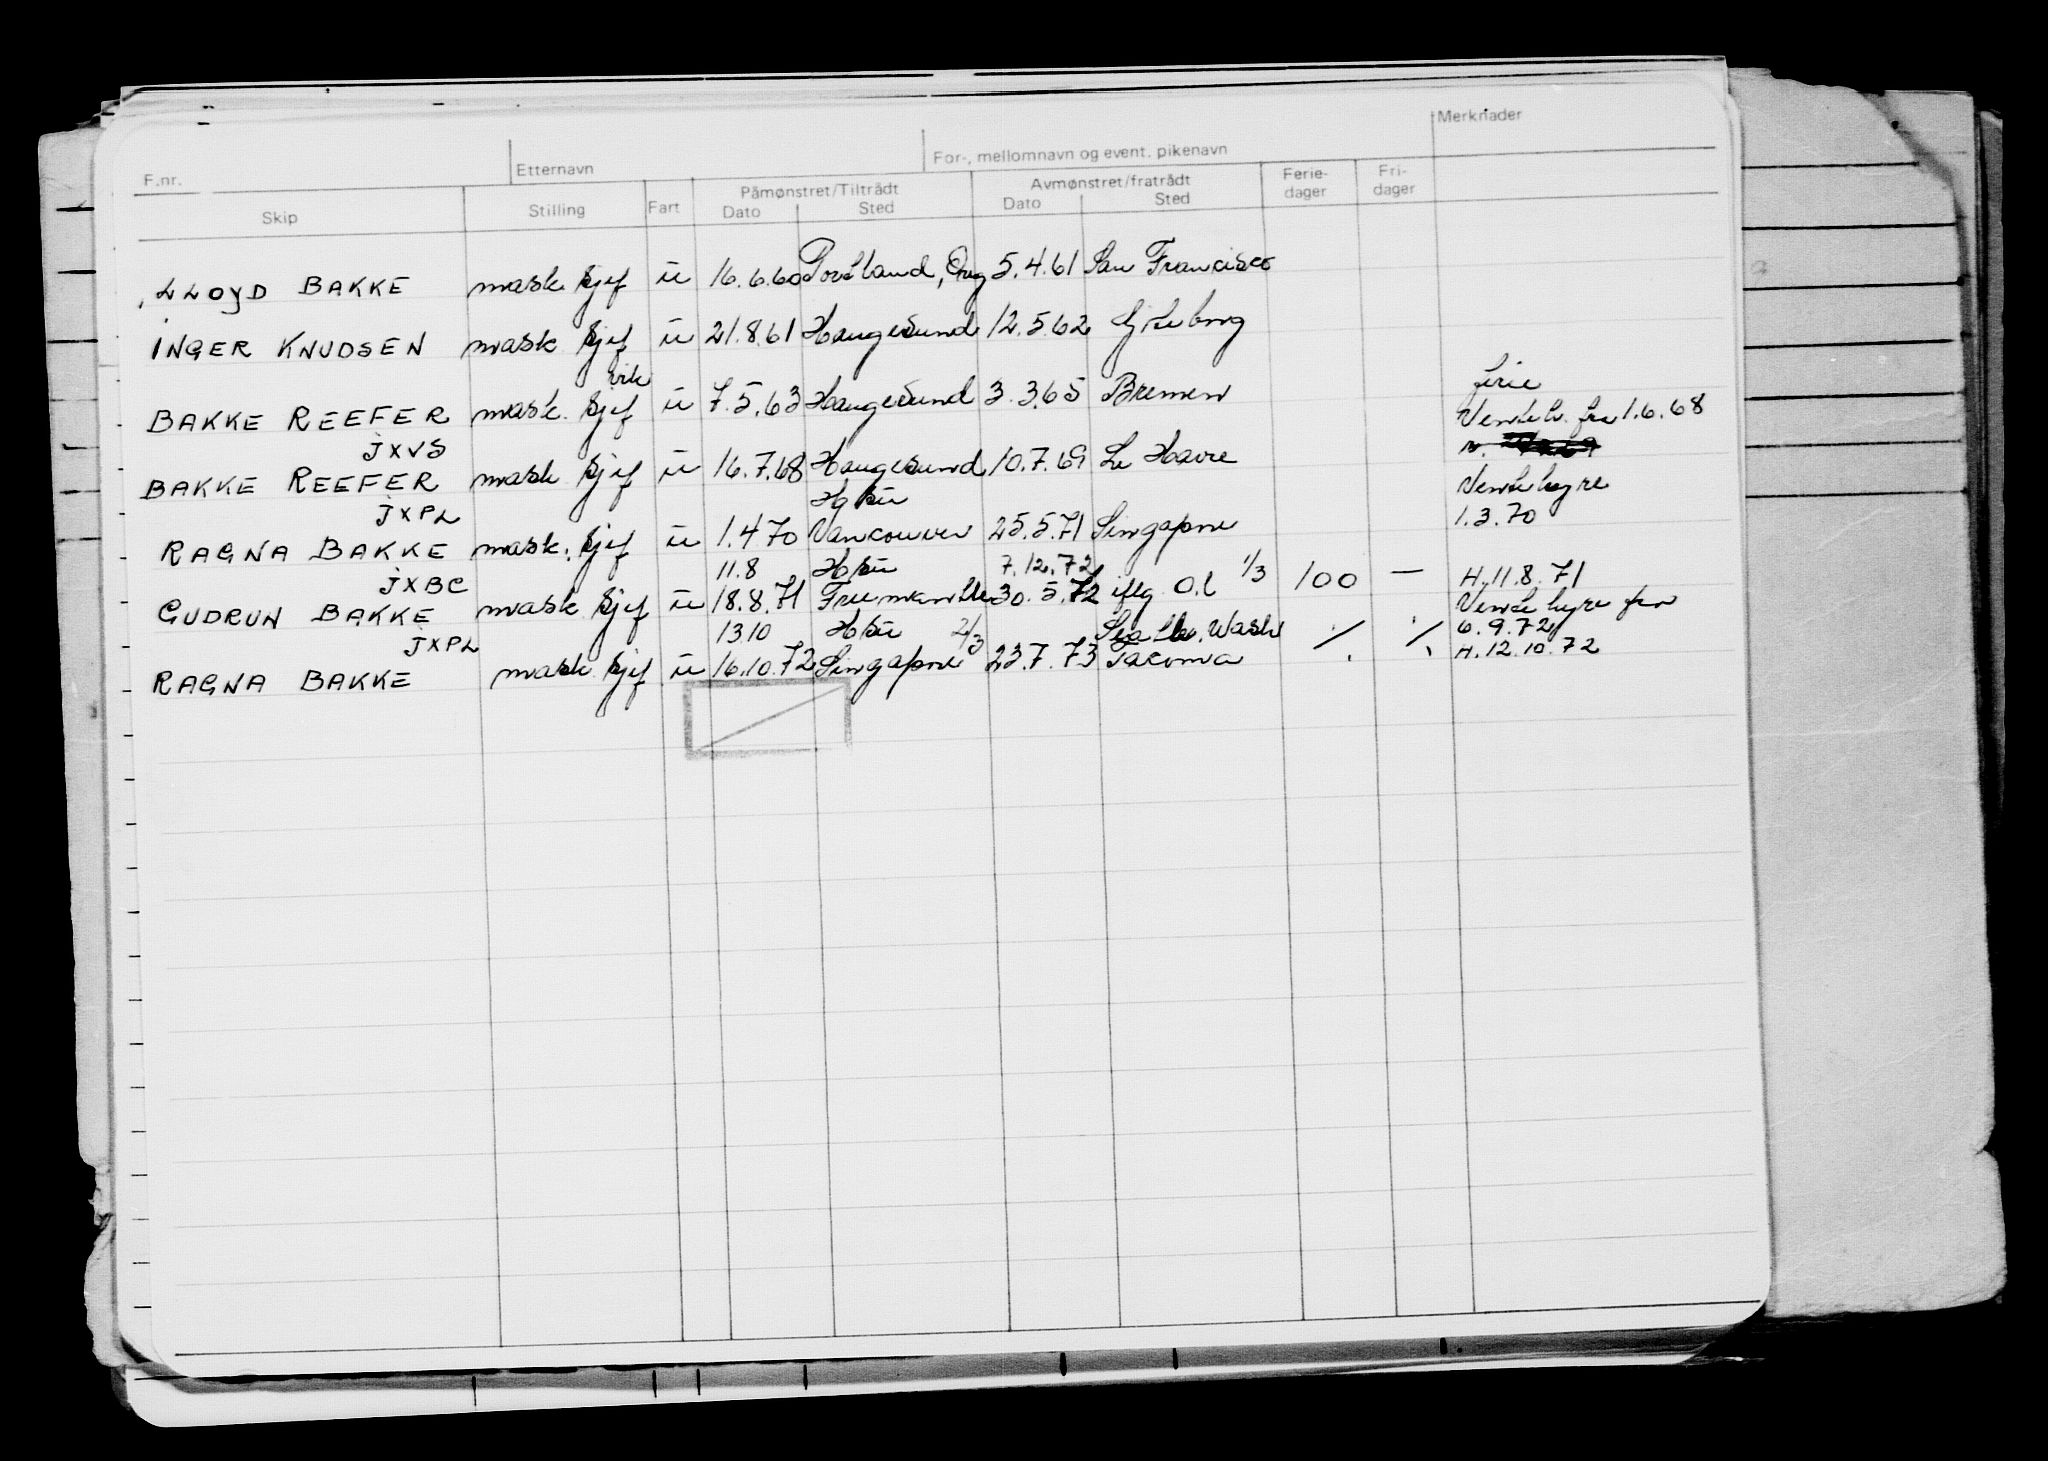 Merknader
F.nr. Etternavn For-, mellomnavn og event. pikenavn
Skip Stilling Fart Påmønstret/Tiltrådt Avmønstret/fratrådt Ferie-dager Fri-dager
Dato Sted Dato Sted
LLOYD BAKKE mask sjef u 16.6.60 Portland, Oreg 5.4.61 San Francisco
INGER KNUDSEN mask sjef u 21.8.61 Haugesund 12.5.62 Gøteborg
vik ferie
BAKKE REEFER mask. sjef u 7.5.63 Haugesund 3.3.65 Bremen Venteh. fra 1.6.68
JXVS
BAKKE REEFER mask sjef u 16.7.68 Haugesund 10.7.69 Le Havre Ventehyre
JXPL 1.3.70
RAGNA BAKKE mask. sjef u 1.4.70 Vancouver 25.5.71 Singapore
JXBC 11.8 7.12.72 1/3 100 — H. 11.8.71
GUDRUN BAKKE mask sjef u 18.8.71 30.5.72 iflg O.l Ventehyre fra
JXPL 1310 2/3 Seattle, Wash ٪ ٪ 6.9.72
H. 12.10.72
RAGNA BAKKE mask sjef u 16.10.72 Singapore 23.7.73 Tacoma